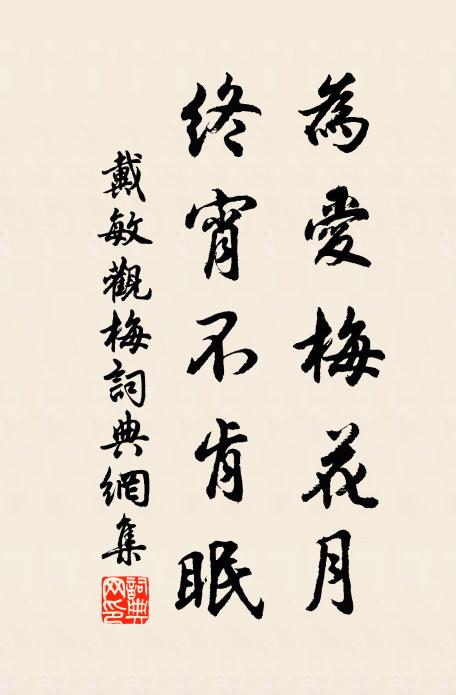 為愛梅花月
終宵不肯眠
戴敏觀梅詞典網集
詞典
網印